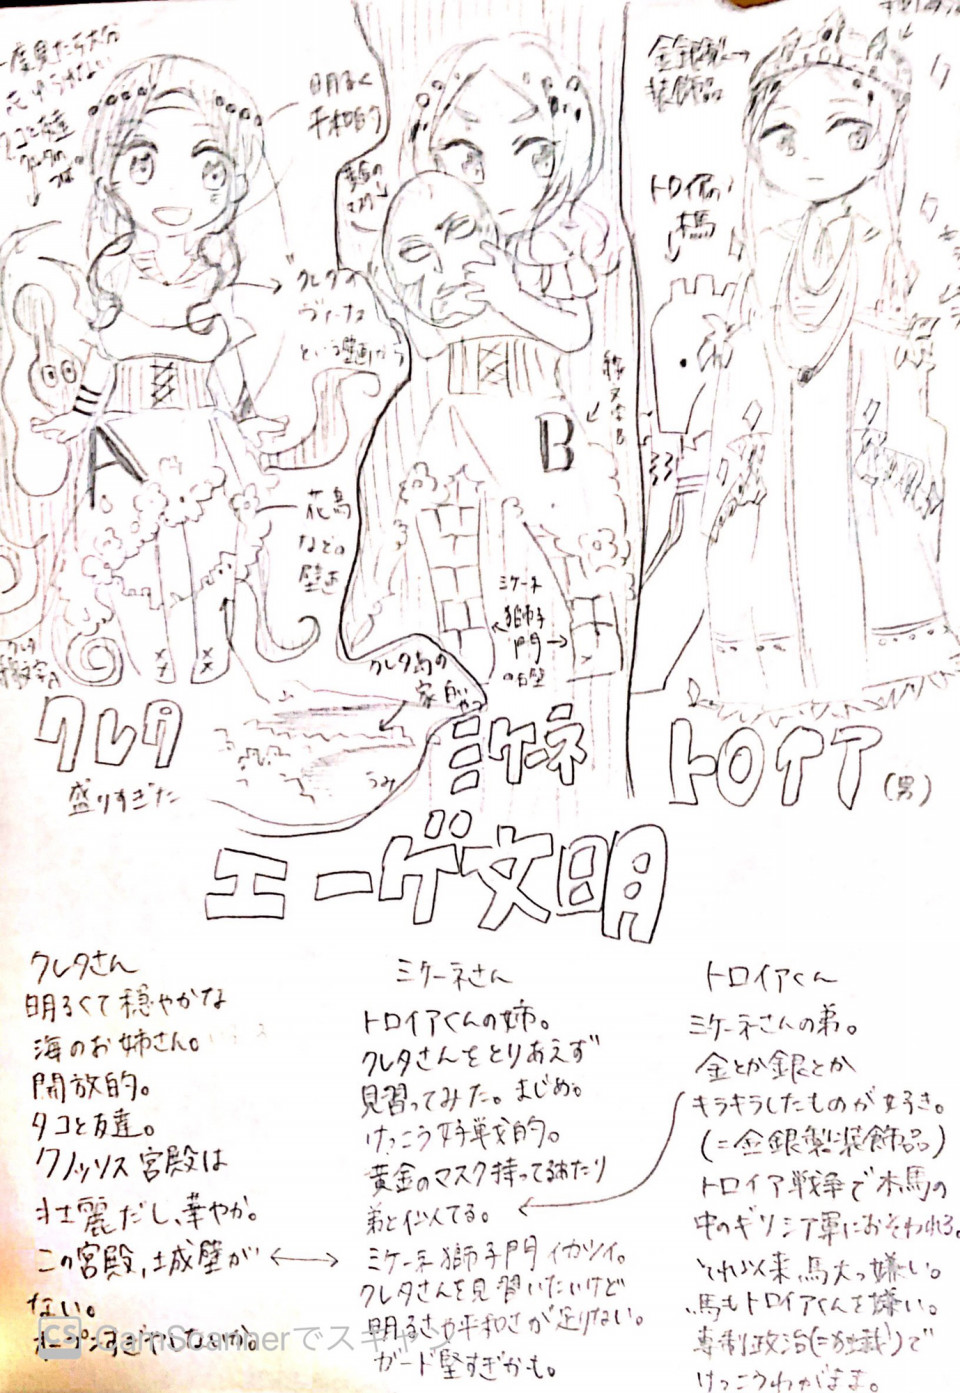 明るく
平和的
クレタの
ヴィーナス
という壁画から
A
花鳥
など。
壁画
クレタ
盛りすぎた
クレタ島の
家
うみ
黄金の
マスク
B
ミケーネ
獅子
門
の白壁
ミケーネ
金銀製
装飾品
トロイアの
木馬
トロイア(男)
エーゲ文明
クレタさん
明るくて穏やかな
海のお姉さん。
開放的。
タコと友達。
クノッソス宮殿は
壮麗だし、華やか。
この宮殿、城壁が
ない。
オープンすぎやしないか。
ミケーネさん
トロイアくんの姉。
クレタさんをとりあえず
見習ってみた。まじめ。
けっこう好戦的。
黄金のマスク持ってたり
弟と似てる。
ミケーネ獅子門イカツイ。
クレタさんを見習いたいけど
明るさや平和さが足りない。
ガード堅すぎかも。
トロイアくん
ミケーネさんの弟。
金とか銀とか
キラキラしたものが好き。
(=金銀製装飾品)
トロイア戦争で木馬の
中のギリシア軍におそわれる。
それ以来、馬大っ嫌い。
馬もトロイアくんを嫌い。
専制政治(=独裁)で
けっこうわがまま。
CS CamScannerでスキャ